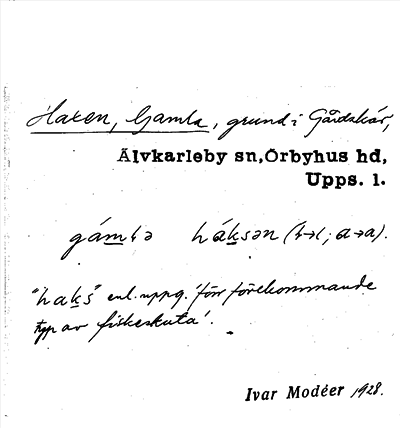 Haxen, Gamla, grund i Gårdskär,
Älvkarleby sn, Örbyhus hd,
Upps. l.
gámlə háksən (ɫ→l; a→a).
"haks" enl. uppg. 'förr förekommande
typ av fiskeskuta'.
Ivar Modéer 1928.